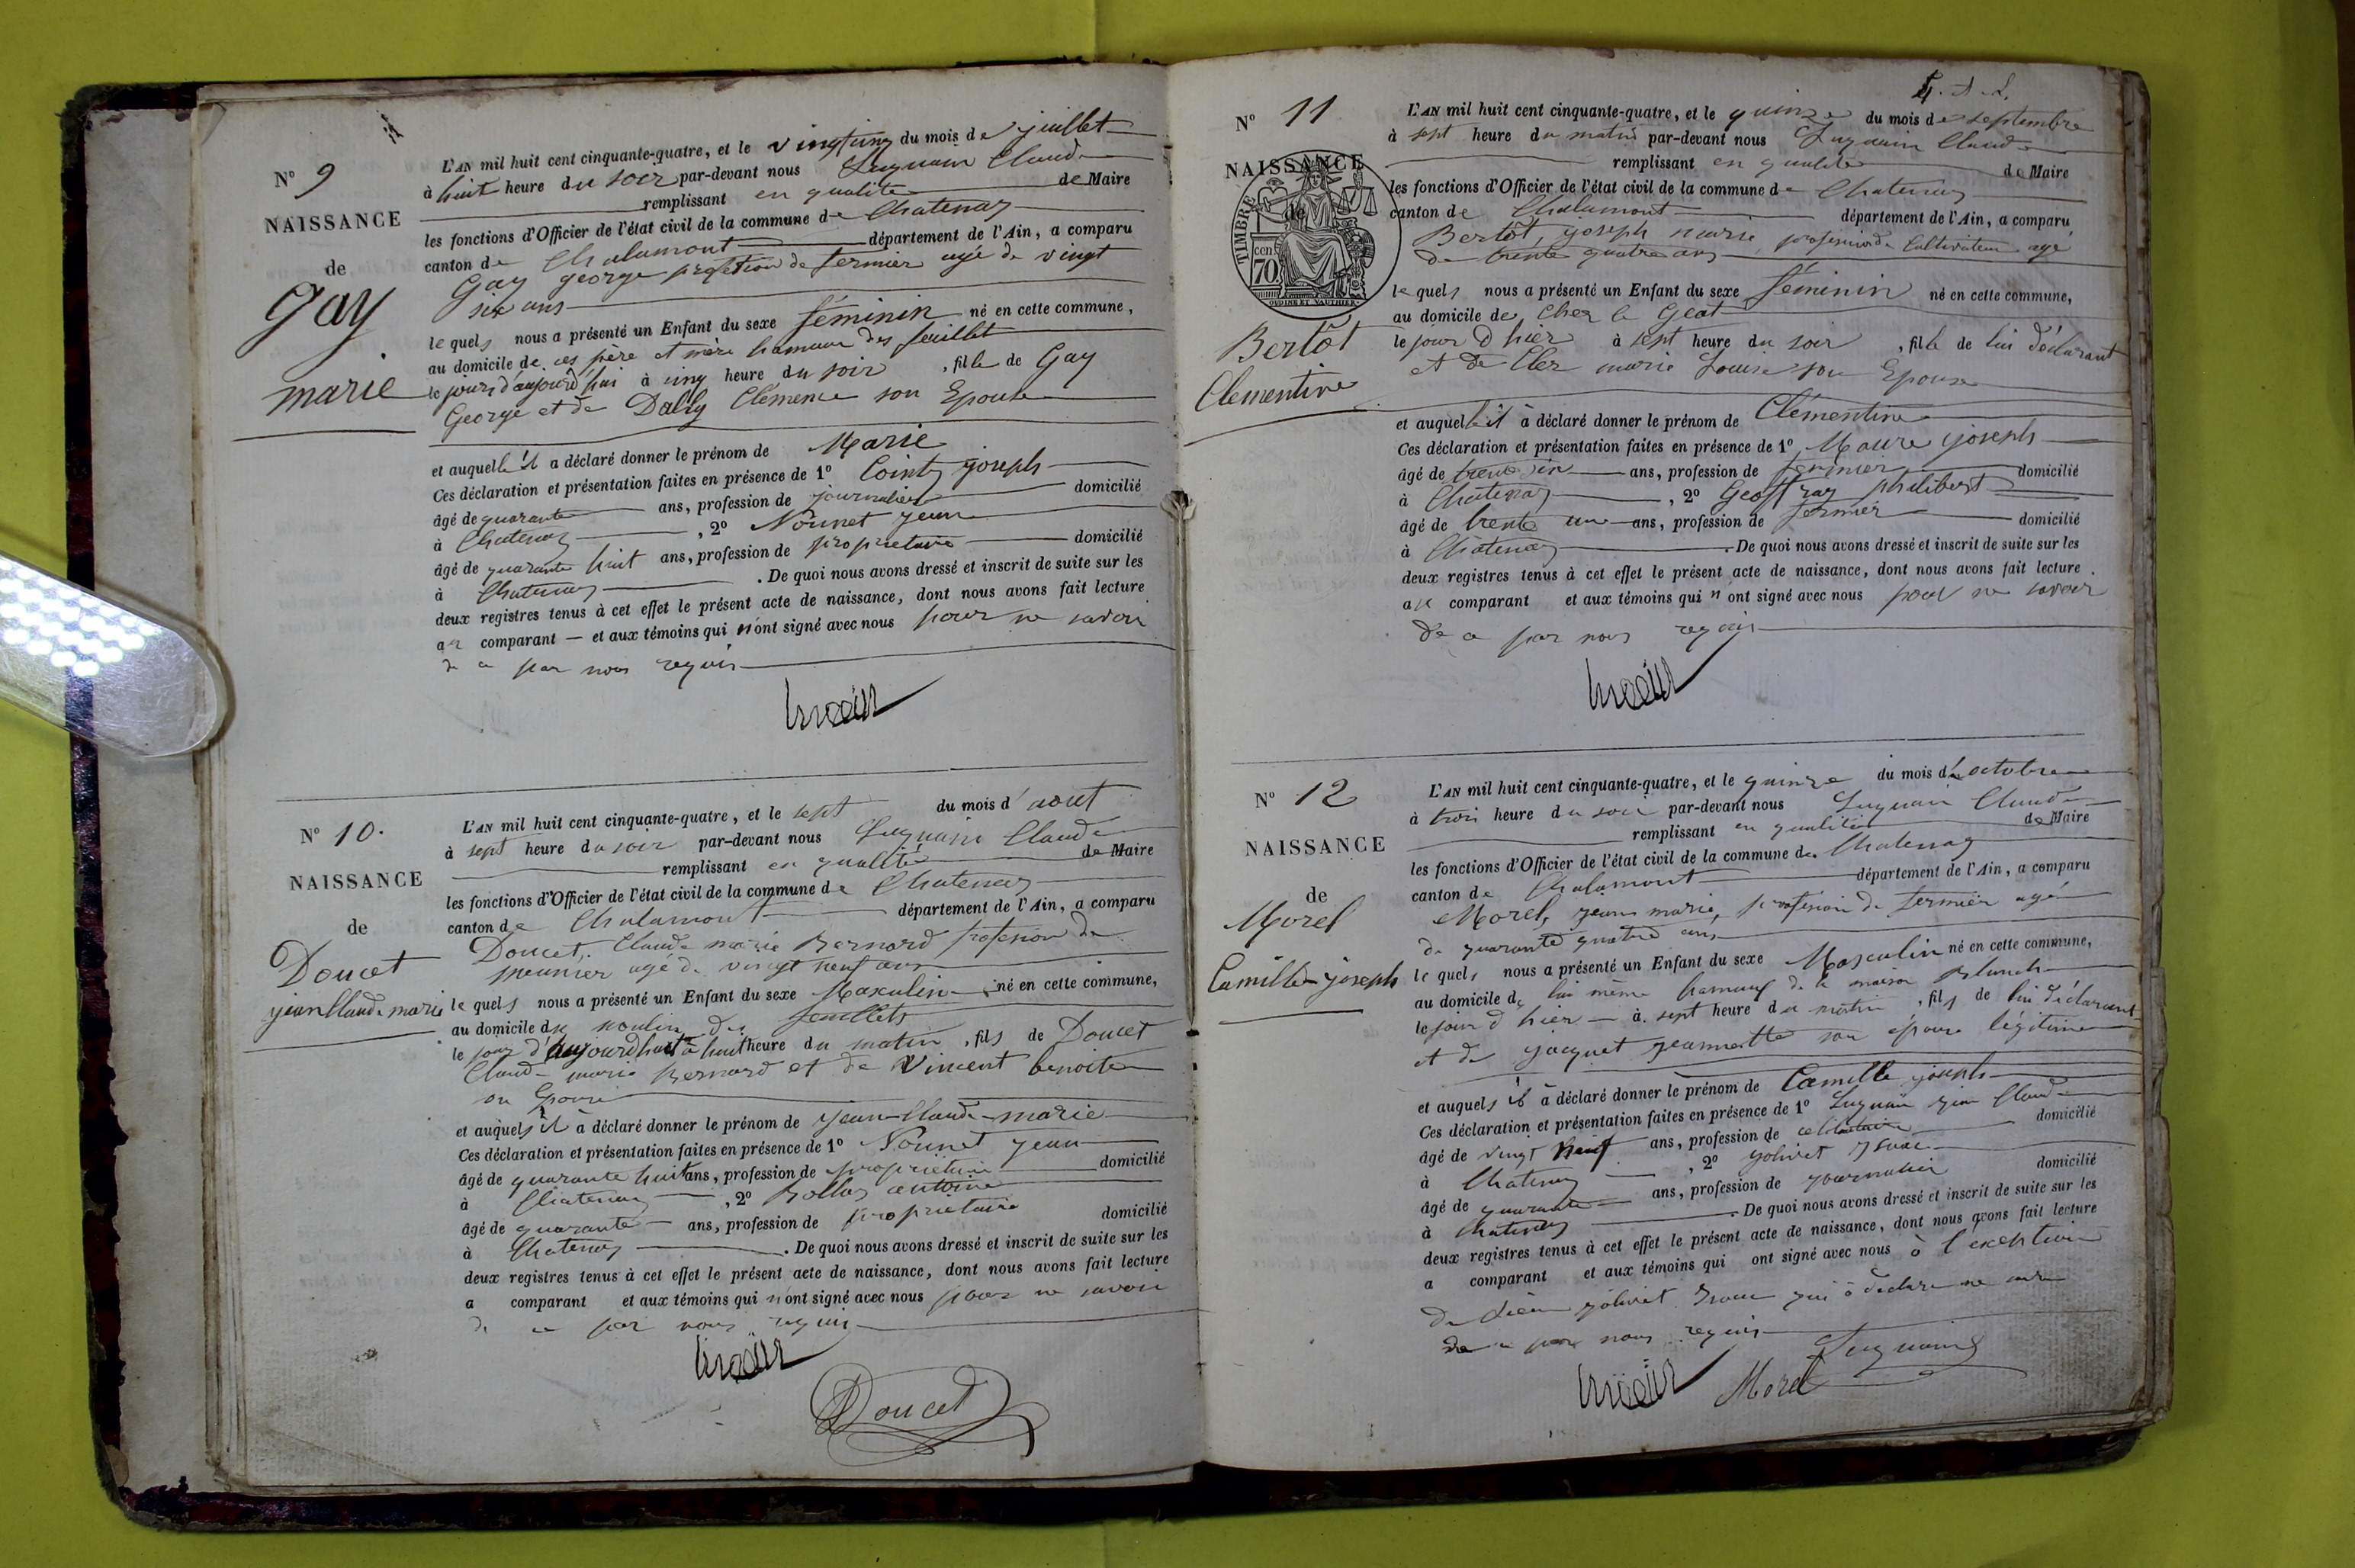 N° 9
NAISSANCE
de
Gay
marie
L'AN mil huit cent cinquante-quatre, et le vingtcinq du mois de juillet
à huit heure du soir par-devant nous Luquain Claude
remplissant en qualité de Maire
les fonctions d'Officier de l'état civil de la commune de Chatenay
canton de Chalamont département de l'Ain, a comparu
Gay george profetion de fermier agé de vingt
six ans
le quels nous a présenté un Enfant du sexe féminin né en cette commune,
au domicile de ces père et mère hameau des feuillet
le jours d'aujourd'hui à cinq heure du soir , fille de Gay
George et de Dally Clémence son Epouse
et auquelle il a déclaré donner le prénom de Marie
Ces déclaration et présentation faites en présence de 1° Cointy joseph
âgé de quarante ans, profession de journalier domicilié
à Chatenay , 2° Nounet jean
âgé de quarante huit ans, profession de propriétaire domicilié
à Chatenay . De quoi nous avons dressé et inscrit de suite sur les
deux registres tenus à cet effet le présent acte de naissance, dont nous avons fait lecture
au comparant — et aux témoins qui n'ont signé avec nous pour ne savoir
de ce par nous requis
N° 10.
NAISSANCE
de
Doucet
jean Claude marie
L'AN mil huit cent cinquante-quatre, et le sept du mois d'aout
à sept heure du soir par-devant nous Luquain Claude
remplissant en qualité de Maire
les fonctions d'Officier de l'état civil de la commune de Chatenay
canton de Chalamont département de l'Ain, a comparu
Doucet, Claude marie Bernard profesion de
meunier agé de vingt neuf ans
le quels nous a présenté un Enfant du sexe Masculin né en cette commune,
au domicile du moulin des feuillets
le jour d'aujourdhuit à huit heure du matin , fils de Doucet
Claude marie Bernard et de Vincent benoite
son Epouse
et auquels il à déclaré donner le prénom de jean-Claude-marie
Ces déclaration et présentation faites en présence de 1° Nounet jean
âgé de quarante huit ans, profession de propriétaire domicilié
à Chatenay , 2° Bollas antoine
âgé de quarante ans, profession de propriétaire domicilié
à Chatenay . De quoi nous avons dressé et inscrit de suite sur les
deux registres tenus à cet effet le présent acte de naissance, dont nous avons fait lecture
a comparant et aux témoins qui n'ont signé avec nous pour ne savoir
de ce par nous requis
Doucet
N° 11
NAISSANCE
de
TIMBRE
cen
70
OUDINE ET VAUTHIER
Bertôt
Clementine
L'AN mil huit cent cinquante-quatre, et le quinze du mois de septembre
à sept heure du matin par-devant nous Luquain Claude
remplissant en qualité de Maire
les fonctions d'Officier de l'état civil de la commune de Chatenay
canton de Chalamont département de l'Ain, a comparu
Bertôt, joseph marie, profession de Cultivateur agé
de trente quatre ans
le quels nous a présenté un Enfant du sexe féminin né en cette commune,
au domicile de Chez le Geat
le jour d hier à sept heure du soir , fille de lui déclarant
et de Cler marie Louise son Epouse
et auquelle il à déclaré donner le prénom de Clémentine
Ces déclaration et présentation faites en présence de 1° Maure joseph
âgé de trente six ans, profession de fermier domicilié
à Chatenay , 2° Geoffray philibert
âgé de trente un ans, profession de fermier domicilié
à Chatenay . De quoi nous avons dressé et inscrit de suite sur les
deux registres tenus à cet effet le présent acte de naissance, dont nous avons fait lecture
au comparant et aux témoins qui n ont signé avec nous pour ne savoir
de ce par nous requis
N° 12
NAISSANCE
de
Morel
Camille-joseph
L'AN mil huit cent cinquante-quatre, et le quinze du mois d'octobre
à trois heure du soir par-devant nous Luquain Claude
remplissant en qualité de Maire
les fonctions d'Officier de l'état civil de la commune de Chatenay
canton de Chalamont département de l'Ain, a comparu
Morel, jean marie, profession de fermier agé
de quarante quatre ans
le quels nous a présenté un Enfant du sexe Masculin né en cette commune,
au domicile de lui même hameau de la maison Blanch
le jour d hier — à sept heure du matin , fils de lui déclarant
et de jacquet jeannette son épouse légitime
et auquels il à déclaré donner le prénom de Camille joseph
Ces déclaration et présentation faites en présence de 1° Luquain jean Claude
âgé de vingt neuf ans, profession de domicilié
à Chatenay , 2° jolivet Isaac
âgé de quarante ans, profession de journalier domicilié
à Chatenay . De quoi nous avons dressé et inscrit de suite sur les
deux registres tenus à cet effet le présent acte de naissance, dont nous avons fait lecture
a comparant et aux témoins qui ont signé avec nous à l'exeption
de jolivet Isaac qui à déclaré ne
de ce par nous requis
Luquain
Morel